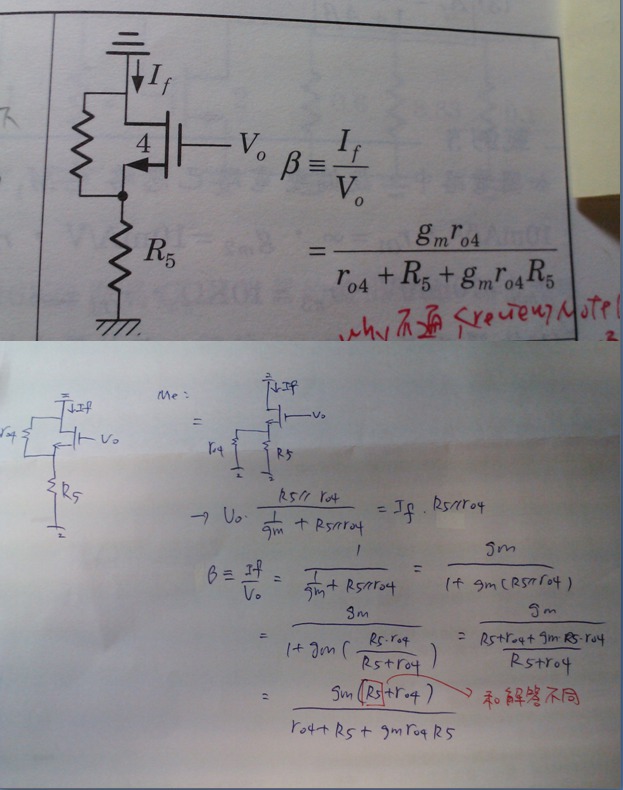 I_f
4
V_o
β ≡ I_f / V_o
R_5
= g_m r_{o4} / (r_{o4} + R_5 + g_m r_{o4} R_5)
why 不通 <review> Note1
↓If
ro4
Vo
R5
Me:
=
↓If
Vo
ro4
R5
→ Vo · (R5 // ro4) / (1/gm + R5//ro4) = If · R5//ro4
β ≡ If / Vo = 1 / (1/gm + R5//ro4) = gm / (1 + gm (R5//ro4))
= gm / (1 + gm (R5·ro4 / (R5 + ro4))) = gm / ((R5 + ro4 + gm·R5·ro4) / (R5 + ro4))
= gm (R5 + ro4) / (ro4 + R5 + gm ro4 R5) → 和解答不同